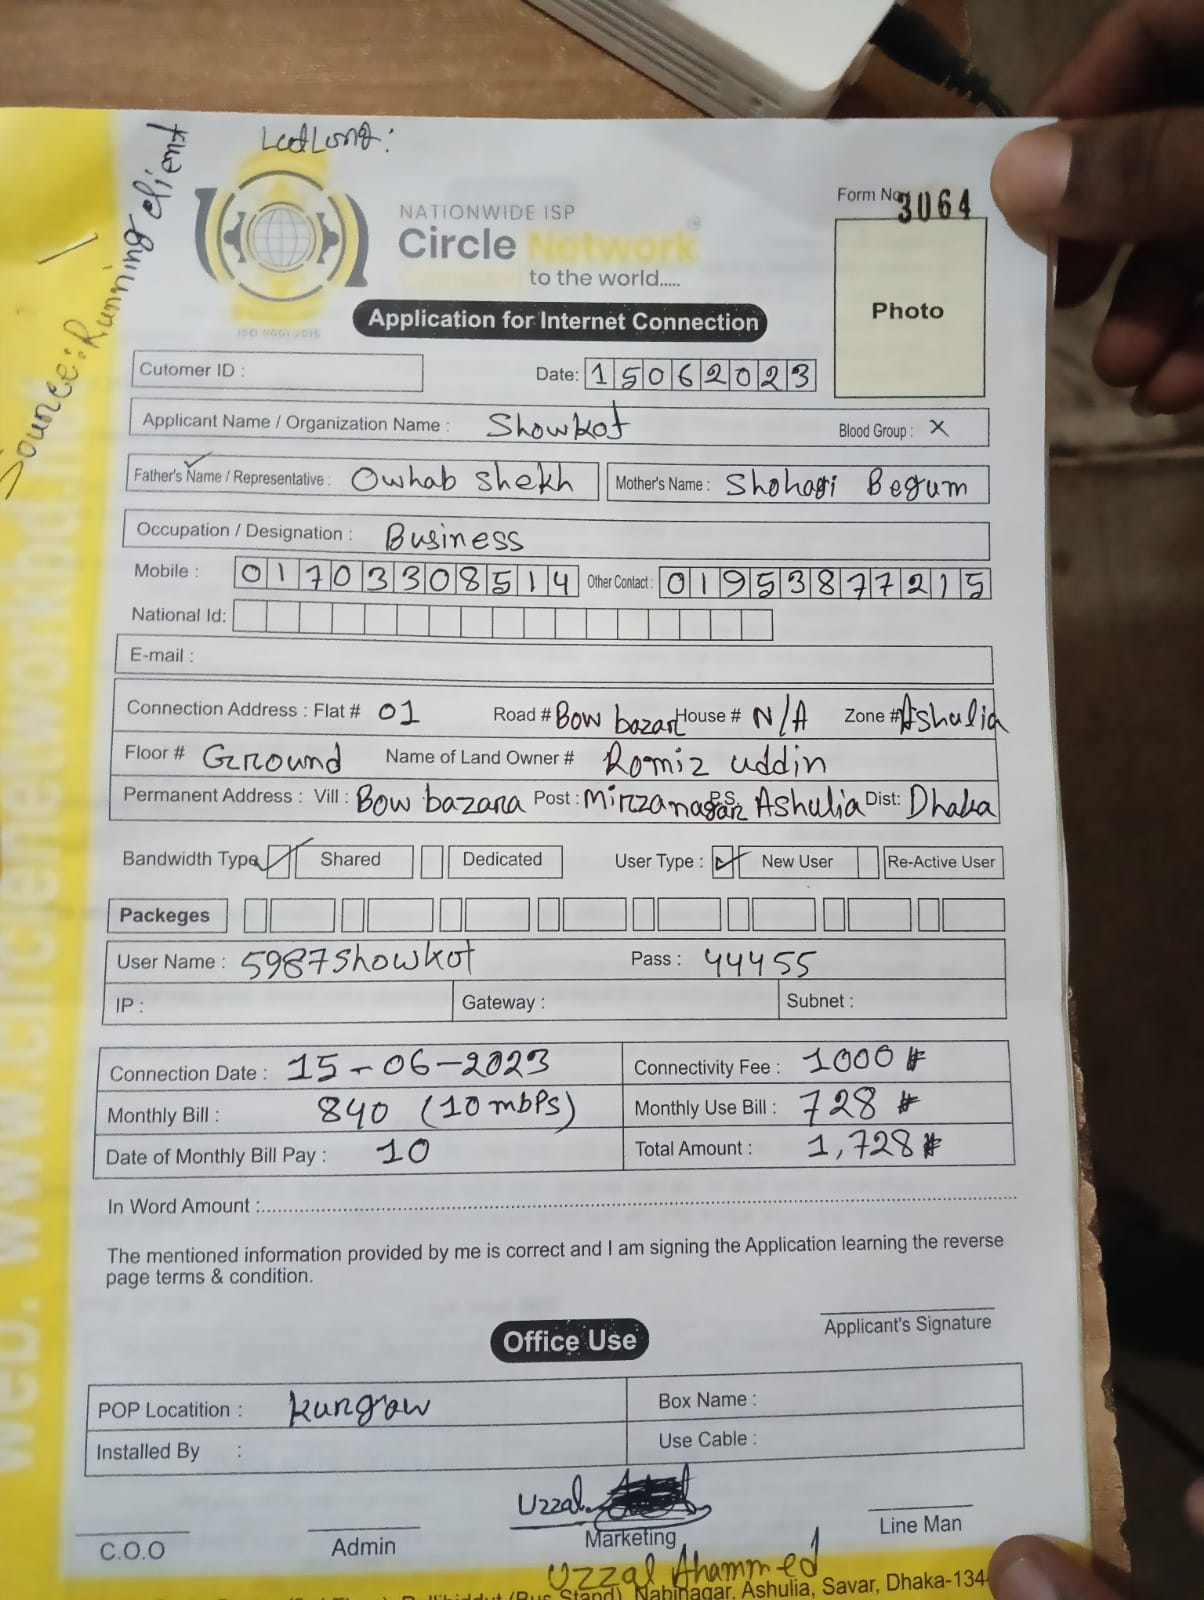 LatLong:
Source: Running client
NATIONWIDE ISP
Circle Network
to the world.....
ISO 9001:2015
Form No. 3064
Photo
Application for Internet Connection
Cutomer ID :
Date: 15062023
Applicant Name / Organization Name : Showkot Blood Group : X
Father's Name / Representative : Owhab shekh Mother's Name : Shohagi Begum
Occupation / Designation : Business
Mobile : 01703308514 Other Contact : 01953877215
National Id:
E-mail :
Connection Address : Flat # 01 Road # Bow bazar House # N/A Zone # Ashulia
Floor # Ground Name of Land Owner # Romiz uddin
Permanent Address : Vill : Bow bazara Post : Mirzanagar P.S. Ashulia Dist: Dhaka
Bandwidth Type Shared Dedicated User Type : New User Re-Active User
Packeges
User Name : 5987showkot Pass : 44455
IP : Gateway : Subnet :
Connection Date : 15-06-2023 Connectivity Fee : 1000 #
Monthly Bill : 840 (10 mbps) Monthly Use Bill : 728 #
Date of Monthly Bill Pay : 10 Total Amount : 1,728 #
In Word Amount :
The mentioned information provided by me is correct and I am signing the Application learning the reverse
page terms & condition.
Applicant's Signature
Office Use
POP Locatition : kungraw Box Name :
Installed By : Use Cable :
Uzzal
C.O.O Admin Marketing Line Man
Uzzal Ahammed
(Bus Stand), Nabinagar, Ashulia, Savar, Dhaka-134